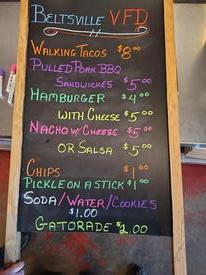 BELTSVILLE VFD
WALKING TACOS $8.00
PULLED PORK BBQ
SANDWICHES $5.00
HAMBURGER $4.00
WITH CHEESE $5.00
NACHO W/ CHEESE $5.00
OR SALSA $5.00
CHIPS $1.00
PICKLE ON A STICK $1.00
SODA/WATER/COOKIES
$1.00
GATORADE $2.00